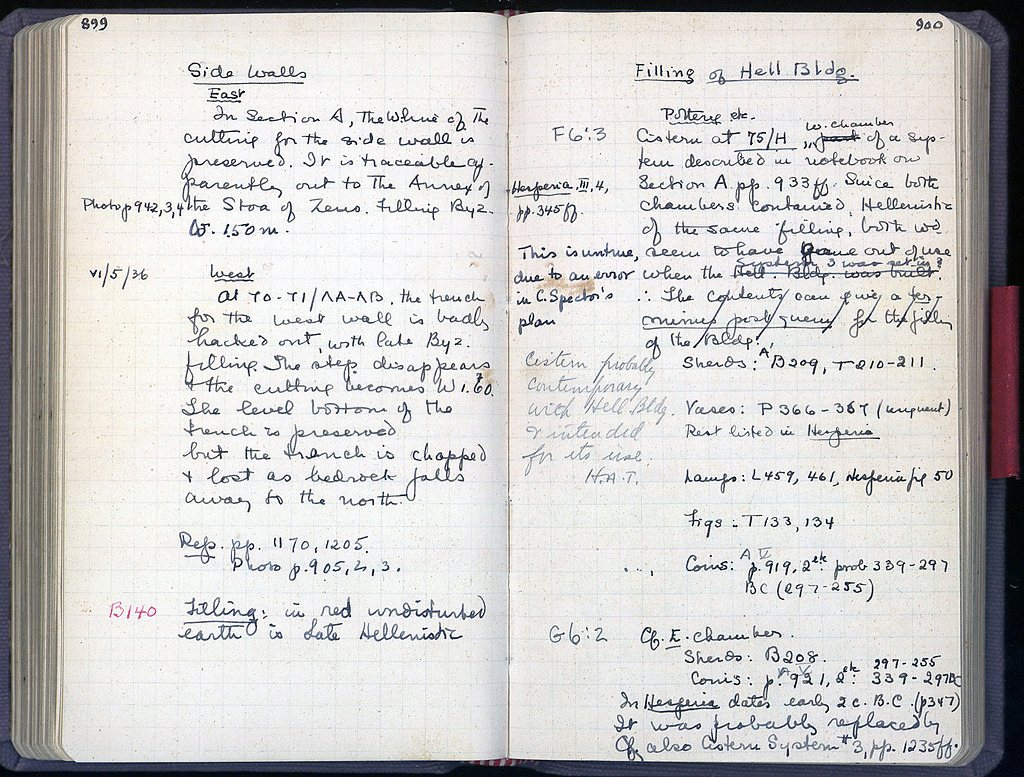 899
Side Walls
East
In Section A, the whole of the
cutting for the side wall is
preserved. It is traceable ap-
parently out to the Annex of
Photo p 942, 3, 4 the Stoa of Zeno. Filling Byz.
W. 1.50 m.
VI/5/36
West
At 70-71/ΛΑ-ΛΒ the trench
for the west wall is badly
hacked out, with late Byz.
filling. The step disappears
& the cutting becomes W 1.60.
The level bottom of the
trench is preserved
but the trench is chopped
& lost as bedrock falls
away to the north.
Refs. pp. 1170, 1205.
Photo p. 905, 2, 3.
B140 Filling: in red undisturbed
earth is late Hellenistic
900
Filling of Hell Bldg.
Pottery etc.
F6:3 Cistern at 75/H, w. chamber of a sys-
tem described in notebook on
Hesperia, III, 4, Section A pp. 933 ff. Since both
pp. 345 ff. chambers contained Hellenistic
of the same filling, both wd
This is untrue, seem to have gone out of use
due to an error when the Hell. Bldg. was built.
System 3 was set in?
in C. Spector's ∴ The contents can give a ter-
plan minus post quem for the filling
of the Bldg.
Cistern probably
contemporary
with Hell Bldg.
& intended
for its use.
H.A.T.
Sherds: A B209, T 210-211.
Vases: P 366-367 (unguent)
Rest listed in Hesperia
Lamps: L459, 461, Hesperia fig 50
Figs: T 133, 134
Coins: A V p. 919, 2 etc. prob 339-297
BC (297-255)
G6:2 Cf. E. chamber.
Sherds: B208.
297-255
Coins: p. A V 921, 2 etc: 339-297 BC
In Hesperia dates early 2 c. B.C. (p347)
It was probably replaced by
Cf. also Cistern System #3, pp. 1235 ff.